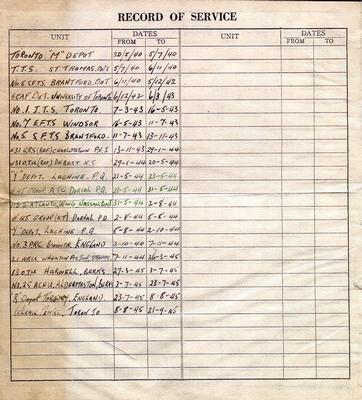 RECORD OF SERVICE
UNIT DATES FROM TO UNIT DATES FROM TO
TORONTO "M" DEPOT 30/5/40 5/7/40
T.T.S. ST. THOMAS. ONT 5/7/40 6/11/40
No 5 SFTS BRANTFORD. ONT 6/11/40 5/12/42
RCAF DET. UNIVERSITY OF TORONTO 6/12/42 6/3/43
No. 1 I.T.S. TORONTO 7-3-43 16-5-43
No. 7 EFTS WINDSOR 16-5-43 11-7-43
No. 5 SFTS BRANTFORD. 11-7-43 13-11-43
#31 (RAF) CHARLOTTETOWN P.E.I 13-11-43 29-1-44
#31 O.T.U. (RAF) DEBERT N.S 29-1-44 20-5-44
"Y" DEPOT. LACHINE, P.Q. 21-5-44 23-5-44
#45 GROUP ATC, DORVAL P.Q. 23-5-44 31-5-44
ATLANTIC WING, NASSAU 31-5-44 2-8-44
#45 GROUP DORVAL P.Q 2-8-44 5-8-44
"Y" DEPOT, LACHINE P.Q. 5-8-44 2-10-44
No. 3 PRC ENGLAND 2-10-44 7-11-44
21 WHEATON ASTON, 7-11-44 26-3-45
13 O.T.U HARWELL, BERKS 27-3-45 3-7-45
No. 25 ACHU, ALDERMASTON, BERKS 3-7-45 23-7-45
"R" Depot TORQUAY, ENGLAND. 23-7-45 8-8-45
TORONTO 8-8-45 21-9-45